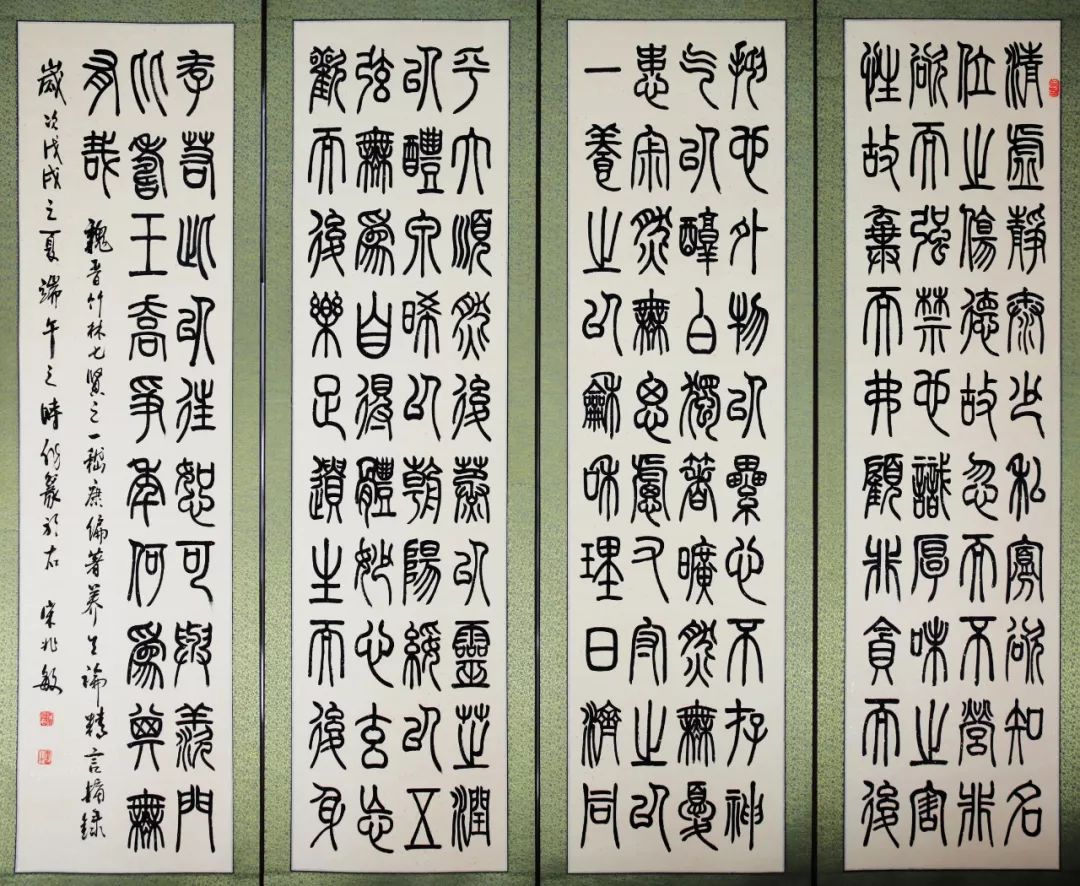 清虛靜泰少私寡欲知名
位之傷德故忽而不營非
欲而强禁也識厚味之害
性故棄而弗顧非貪而後
抑也外物以纍心不存神
气以醇白獨著曠然無憂
患寂然無思慮又守之以
一養之以龢和理日濟同
乎大順然後蒸以靈芝潤
以醴泉晞以朝陽綏以五
弦無爲自得體妙心玄忘
歡而後樂足遺生而後身
存若此以往恕可與羨門
比壽王喬爭年何爲其無
有哉
魏晉竹林七賢之一嵇康編著養生論精言摘録
歲次戊戌之夏端午之時仿篆於右 宋兆敏